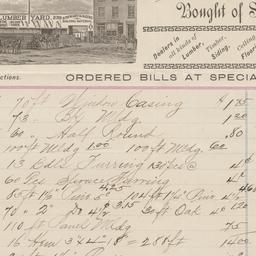 LUMBER YARD.
Bought of S
Dealers in all kinds of Lumber, Timber, Siding, Ceiling Floori
ctions. ORDERED BILLS AT SPECIA
70 ft Window Casing $ 1.75
73 " By Mldg 1.20
60 " Half Round .80
100 ft Mldg 1.00 100 ft Mldg 60
13 Furring 4¢
60 Pcs Spruce Furring 4¢
85 ft 1½" Pine 5¢ 4.25 104 ft 1½" Pine 4½
70 " 2" Do 4½ $3.15 30 ft Oak 4¢ 1.20
110 ft Panel Mldg 75
16 Hem 3x4-18 = 288 ft 14.00